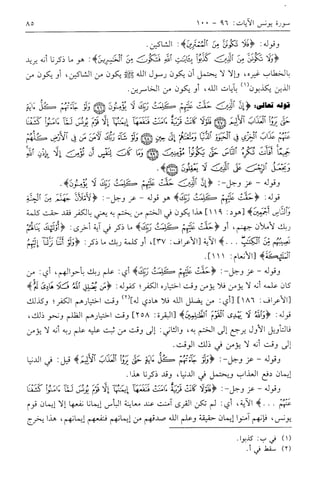 سورة يونس الآيات: ٩٦ - ١٠٠ ٨٥
وقوله: ﴿فَلَا تَكُونَنَّ مِنَ الْمُمْتَرِينَ﴾: الشاكين.
﴿وَلَا تَكُونَنَّ مِنَ الَّذِينَ كَذَّبُوا بِآيَاتِ اللَّهِ فَتَكُونَ مِنَ الْخَاسِرِينَ﴾: هو ما ذكرنا أنه يريد
بالخطاب غيره، وإلا لا يحتمل أن يكون رسول الله ﷺ يكون من الشاكين، أو يكون من
الذين يكذبون(١) بآيات الله، أو يكون من الخاسرين.
قوله تعالى: ﴿إِنَّ الَّذِينَ حَقَّتْ عَلَيْهِمْ كَلِمَتُ رَبِّكَ لَا يُؤْمِنُونَ ۝ وَلَوْ جَاءَتْهُمْ كُلُّ آيَةٍ
حَتَّى يَرَوُا الْعَذَابَ الْأَلِيمَ ۝ فَلَوْلَا كَانَتْ قَرْيَةٌ آمَنَتْ فَنَفَعَهَا إِيمَانُهَا إِلَّا قَوْمَ يُونُسَ لَمَّا آمَنُوا كَشَفْنَا
عَنْهُمْ عَذَابَ الْخِزْيِ فِي الْحَيَاةِ الدُّنْيَا وَمَتَّعْنَاهُمْ إِلَى حِينٍ ۝ وَلَوْ شَاءَ رَبُّكَ لَآمَنَ مَنْ فِي الْأَرْضِ كُلُّهُمْ
جَمِيعًا أَفَأَنْتَ تُكْرِهُ النَّاسَ حَتَّى يَكُونُوا مُؤْمِنِينَ ۝ وَمَا كَانَ لِنَفْسٍ أَنْ تُؤْمِنَ إِلَّا بِإِذْنِ اللَّهِ
وَيَجْعَلُ الرِّجْسَ عَلَى الَّذِينَ لَا يَعْقِلُونَ ۝﴾.
وقوله - عز وجل -: ﴿إِنَّ الَّذِينَ حَقَّتْ عَلَيْهِمْ كَلِمَتُ رَبِّكَ لَا يُؤْمِنُونَ﴾.
قوله: ﴿حَقَّتْ عَلَيْهِمْ كَلِمَتُ رَبِّكَ﴾ هو قوله - عز وجل -: ﴿لَأَمْلَأَنَّ جَهَنَّمَ مِنَ الْجِنَّةِ
وَالنَّاسِ أَجْمَعِينَ﴾ [هود: ١١٩] هذا يكون في الختم من ختم به يعني بالكفر فقد حقت كلمة
ربك لأملأن جهنم، أو ﴿حَقَّتْ عَلَيْهِمْ كَلِمَتُ رَبِّكَ﴾ ما ذكر في آية أخرى: ﴿أُولَئِكَ يَنَالُهُمْ
نَصِيبُهُمْ مِنَ الْكِتَابِ ...﴾ الآية [الأعراف: ٣٧]، أو كلمة ربك ما ذكر: ﴿وَلَوْ أَنَّنَا نَزَّلْنَا إِلَيْهِمُ
الْمَلَائِكَةَ﴾ [الأنعام: ١١١].
وقوله - عز وجل -: ﴿حَقَّتْ عَلَيْهِمْ كَلِمَتُ رَبِّكَ﴾ أي: علم ربك بأحوالهم، أي: من
كان علمه أنه لا يؤمن فلا يؤمن وقت اختياره الكفر؛ كقوله: ﴿مَنْ يُضْلِلِ اللَّهُ فَلَا هَادِيَ لَهُ﴾
[الأعراف: ١٨٦] [أي: من يضلل الله فلا هادي له](٢) وقت اختيارهم الكفر؛ وكذلك
قوله: ﴿وَاللَّهُ لَا يَهْدِي الْقَوْمَ الظَّالِمِينَ﴾ [البقرة: ٢٥٨] وقت اختيارهم الظلم ونحو ذلك،
فالتأويل الأول يرجع إلى الختم به، والثاني: إلى وقت من ثبت عليه علم ربه أنه لا يؤمن
إلى وقت أنه لا يؤمن في ذلك الوقت.
وقوله - عز وجل -: ﴿وَلَوْ جَاءَتْهُمْ كُلُّ آيَةٍ حَتَّى يَرَوُا الْعَذَابَ الْأَلِيمَ﴾ قيل: في الدنيا
إيمان دفع العذاب ويحتمل في الدنيا، وقد ذكرنا هذا.
وقوله - عز وجل -: ﴿فَلَوْلَا كَانَتْ قَرْيَةٌ آمَنَتْ فَنَفَعَهَا إِيمَانُهَا إِلَّا قَوْمَ يُونُسَ لَمَّا آمَنُوا كَشَفْنَا
عَنْهُمْ ...﴾ الآية، أي: لم تكن القرى آمنت عند معاينة البأس إيمانا نفعها إلا إيمان قوم
يونس، فإنهم آمنوا إيمان حقيقة وعلم الله صدقهم من إيمانهم فنفعهم إيمانهم، هذا يخرج
(١) في ب: كذبوا.
(٢) سقط في أ.